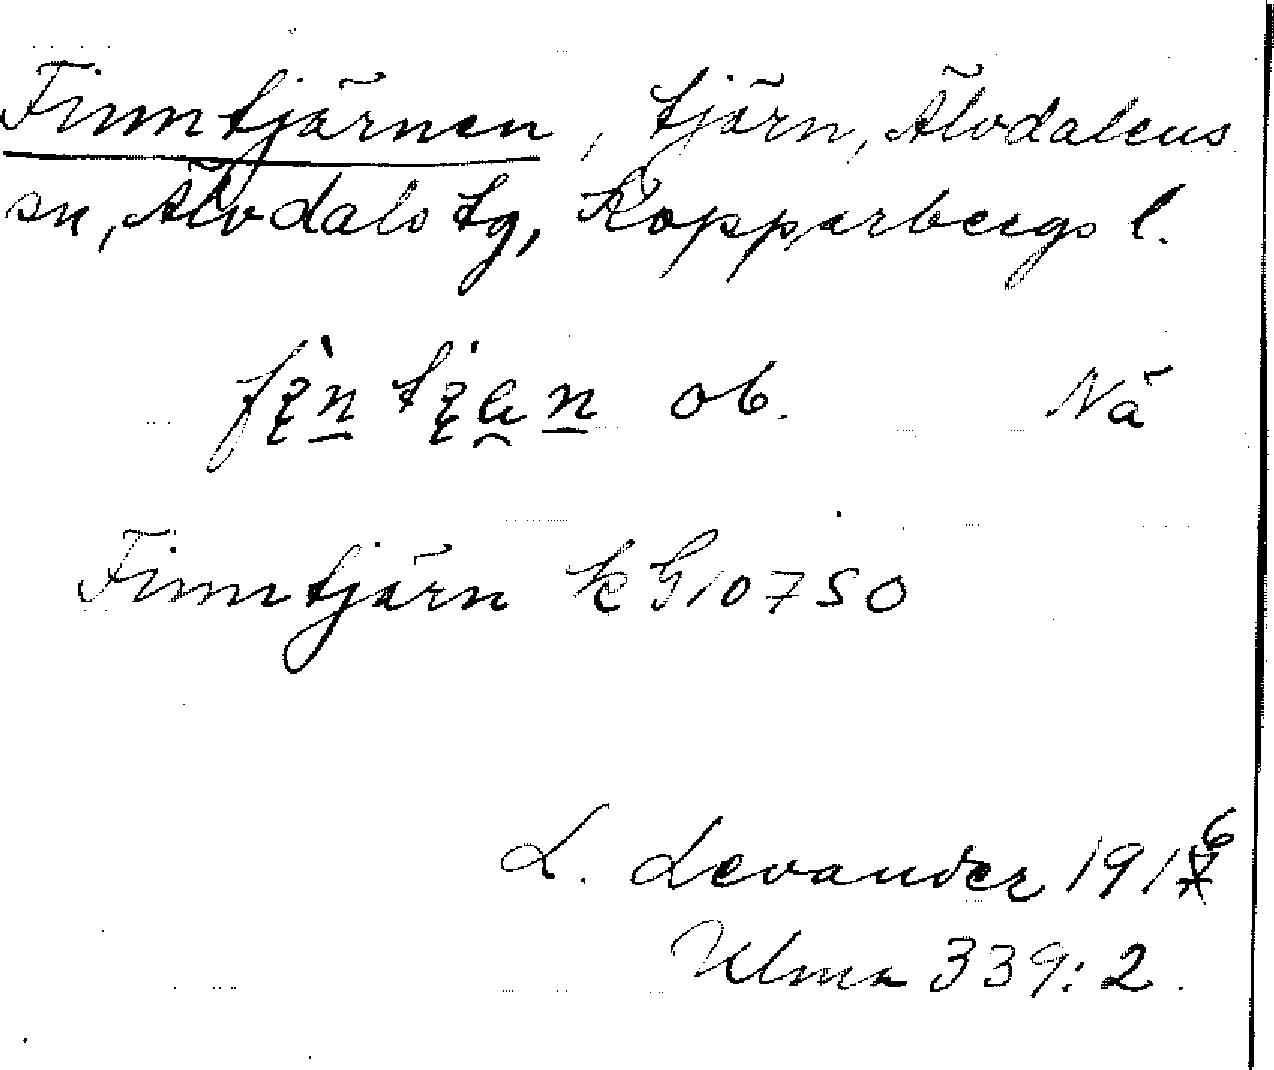 Finntjärnen, tjärn, Älvdalens
sn, Älvdals tg, Kopparbergs l.
ob. Nä
Finntjärn k G 10750
L. Levander 1916
Ulma 339:2.